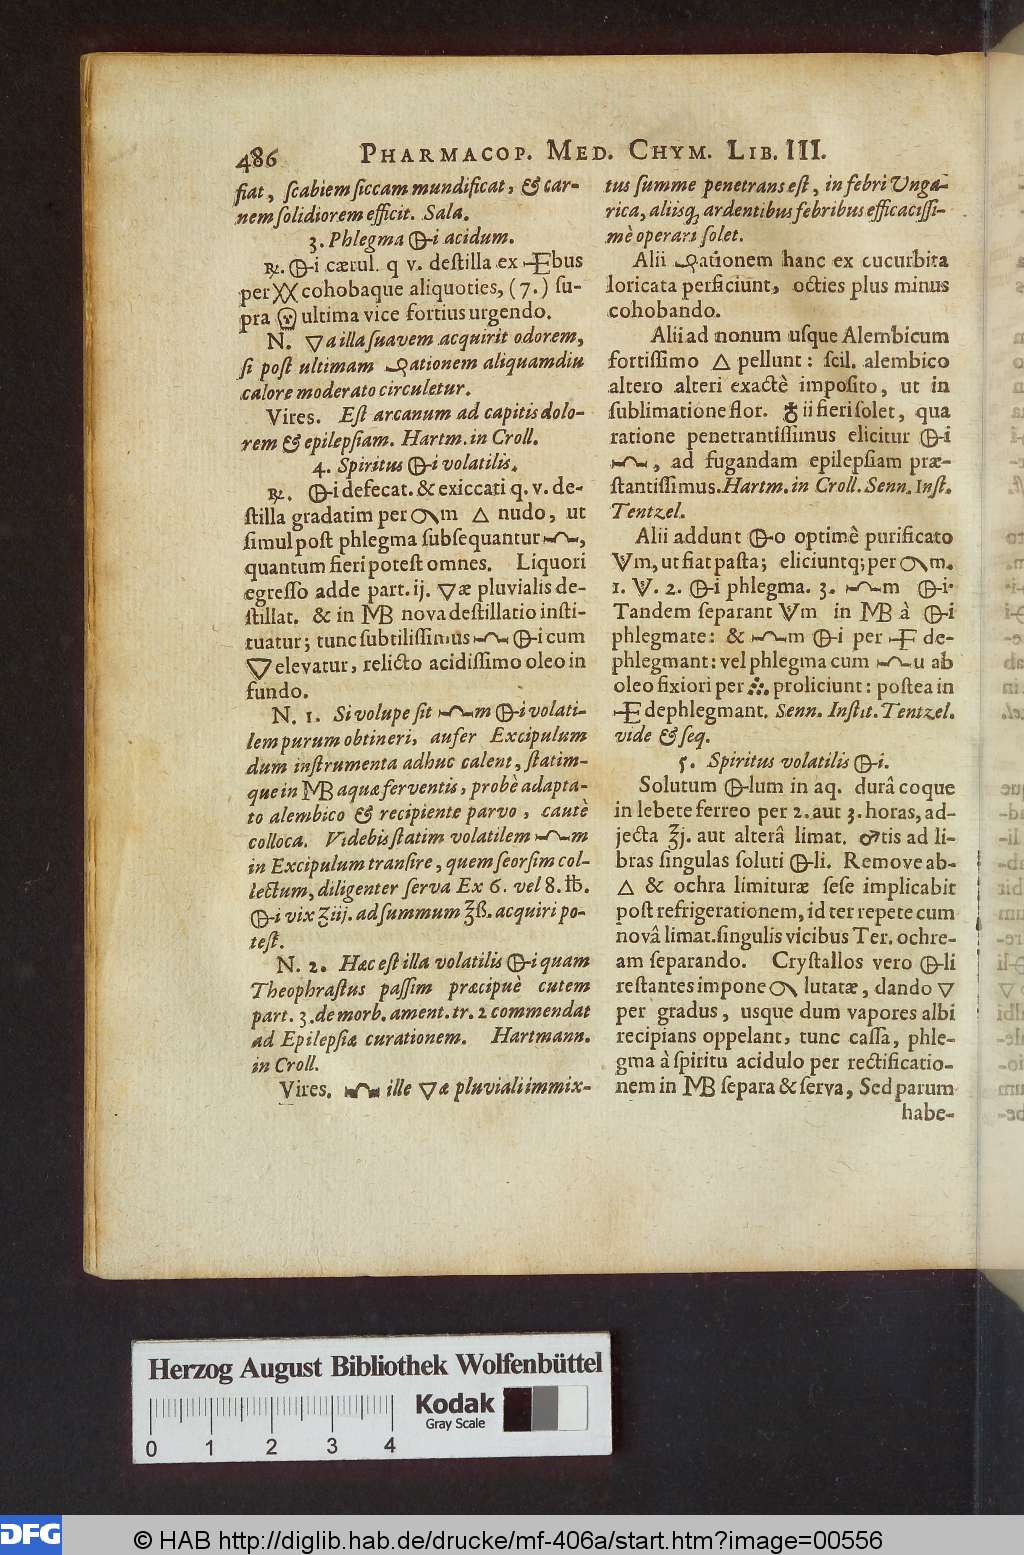 486 PHARMACOP. MED. CHYM. LIB. III.
fiat, scabiem siccam mundificat, & car-
nem solidiorem efficit. Sala.
3. Phlegma 🜖i acidum.
℞. 🜖i cærul. q v. destilla ex bus
per XX cohobaque aliquoties, (7.) su-
pra ☠ ultima vice fortius urgendo.
N. ▽a illa suavem acquirit odorem,
si post ultimam ationem aliquamdiu
calore moderato circuletur.
Vires. Est arcanum ad capitis dolo-
rem & epilepsiam. Hartm. in Croll.
4. Spiritus 🜖i volatilis.
℞. 🜖i defecat. & exiccati q. v. de-
stilla gradatim per m △ nudo, ut
simul post phlegma subsequantur ,
quantum fieri potest omnes. Liquori
egresso adde part. ij. ▽æ pluvialis de-
stillat. & in MB nova destillatio insti-
tuatur; tunc subtilissimus 🜖i cum
▽ elevatur, relicto acidissimo oleo in
fundo.
N. 1. Si volupe sit m 🜖i volati-
lem purum obtineri, aufer Excipulum
dum instrumenta adhuc calent, statim-
que in MB aquæ ferventis, probè adapta-
to alembico & recipiente parvo, cautè
colloca. Videbis statim volatilem m
in Excipulum transire, quem seorsim col-
lectum, diligenter serva Ex 6. vel 8. ℔.
🜖i vix ʒiij. ad summum ℥ß. acquiri po-
test.
N. 2. Hæc est illa volatilis 🜖i quam
Theophrastus passim præcipuè cutem
part. 3. de morb. ament. tr. 2 commendat
ad Epilepsiæ curationem. Hartmann.
in Croll.
Vires. ille ▽æ pluviali immix-
tus summe penetrans est, in febri Unga-
rica, aliisq; ardentibus febribus efficacissi-
mè operari solet.
Alii ationem hanc ex cucurbita
loricata perficiunt, octies plus minus
cohobando.
Alii ad nonum usque Alembicum
fortissimo △ pellunt: scil. alembico
altero alteri exactè imposito, ut in
sublimatione flor. ♁ii fieri solet, qua
ratione penetrantissimus elicitur 🜖i
, ad fugandam epilepsiam præ-
stantissimus. Hartm. in Croll. Senn. Inst.
Tentzel.
Alii addunt 🜖o optimê purificato
m, ut fiat pasta; eliciuntq; per m.
1. . 2. 🜖i phlegma. 3. m 🜖i.
Tandem separant m in MB à 🜖i
phlegmate: & m 🜖i per de-
phlegmant: vel phlegma cum u ab
oleo fixiori per proliciunt: postea in
dephlegmant. Senn. Instit. Tentzel.
vide & seq.
5. Spiritus volatilis 🜖i.
Solutum 🜖lum in aq. durâ coque
in lebete ferreo per 2. aut 3. horas, ad-
jecta ℥j. aut alterâ limat. ♂tis ad li-
bras singulas soluti 🜖li. Remove ab-
△ & ochra limituræ sese implicabit
post refrigerationem, id ter repete cum
novâ limat. singulis vicibus Ter. ochre-
am separando. Crystallos vero 🜖li
restantes impone lutatæ, dando ▽
per gradus, usque dum vapores albi
recipians oppelant, tunc cassa, phle-
gma à spiritu acidulo per rectificatio-
nem in MB separa & serva, Sed parum
habe-
Herzog August Bibliothek Wolfenbüttel
Kodak
Gray Scale
0 1 2 3 4
DFG © HAB http://diglib.hab.de/drucke/mf-406a/start.htm?image=00556